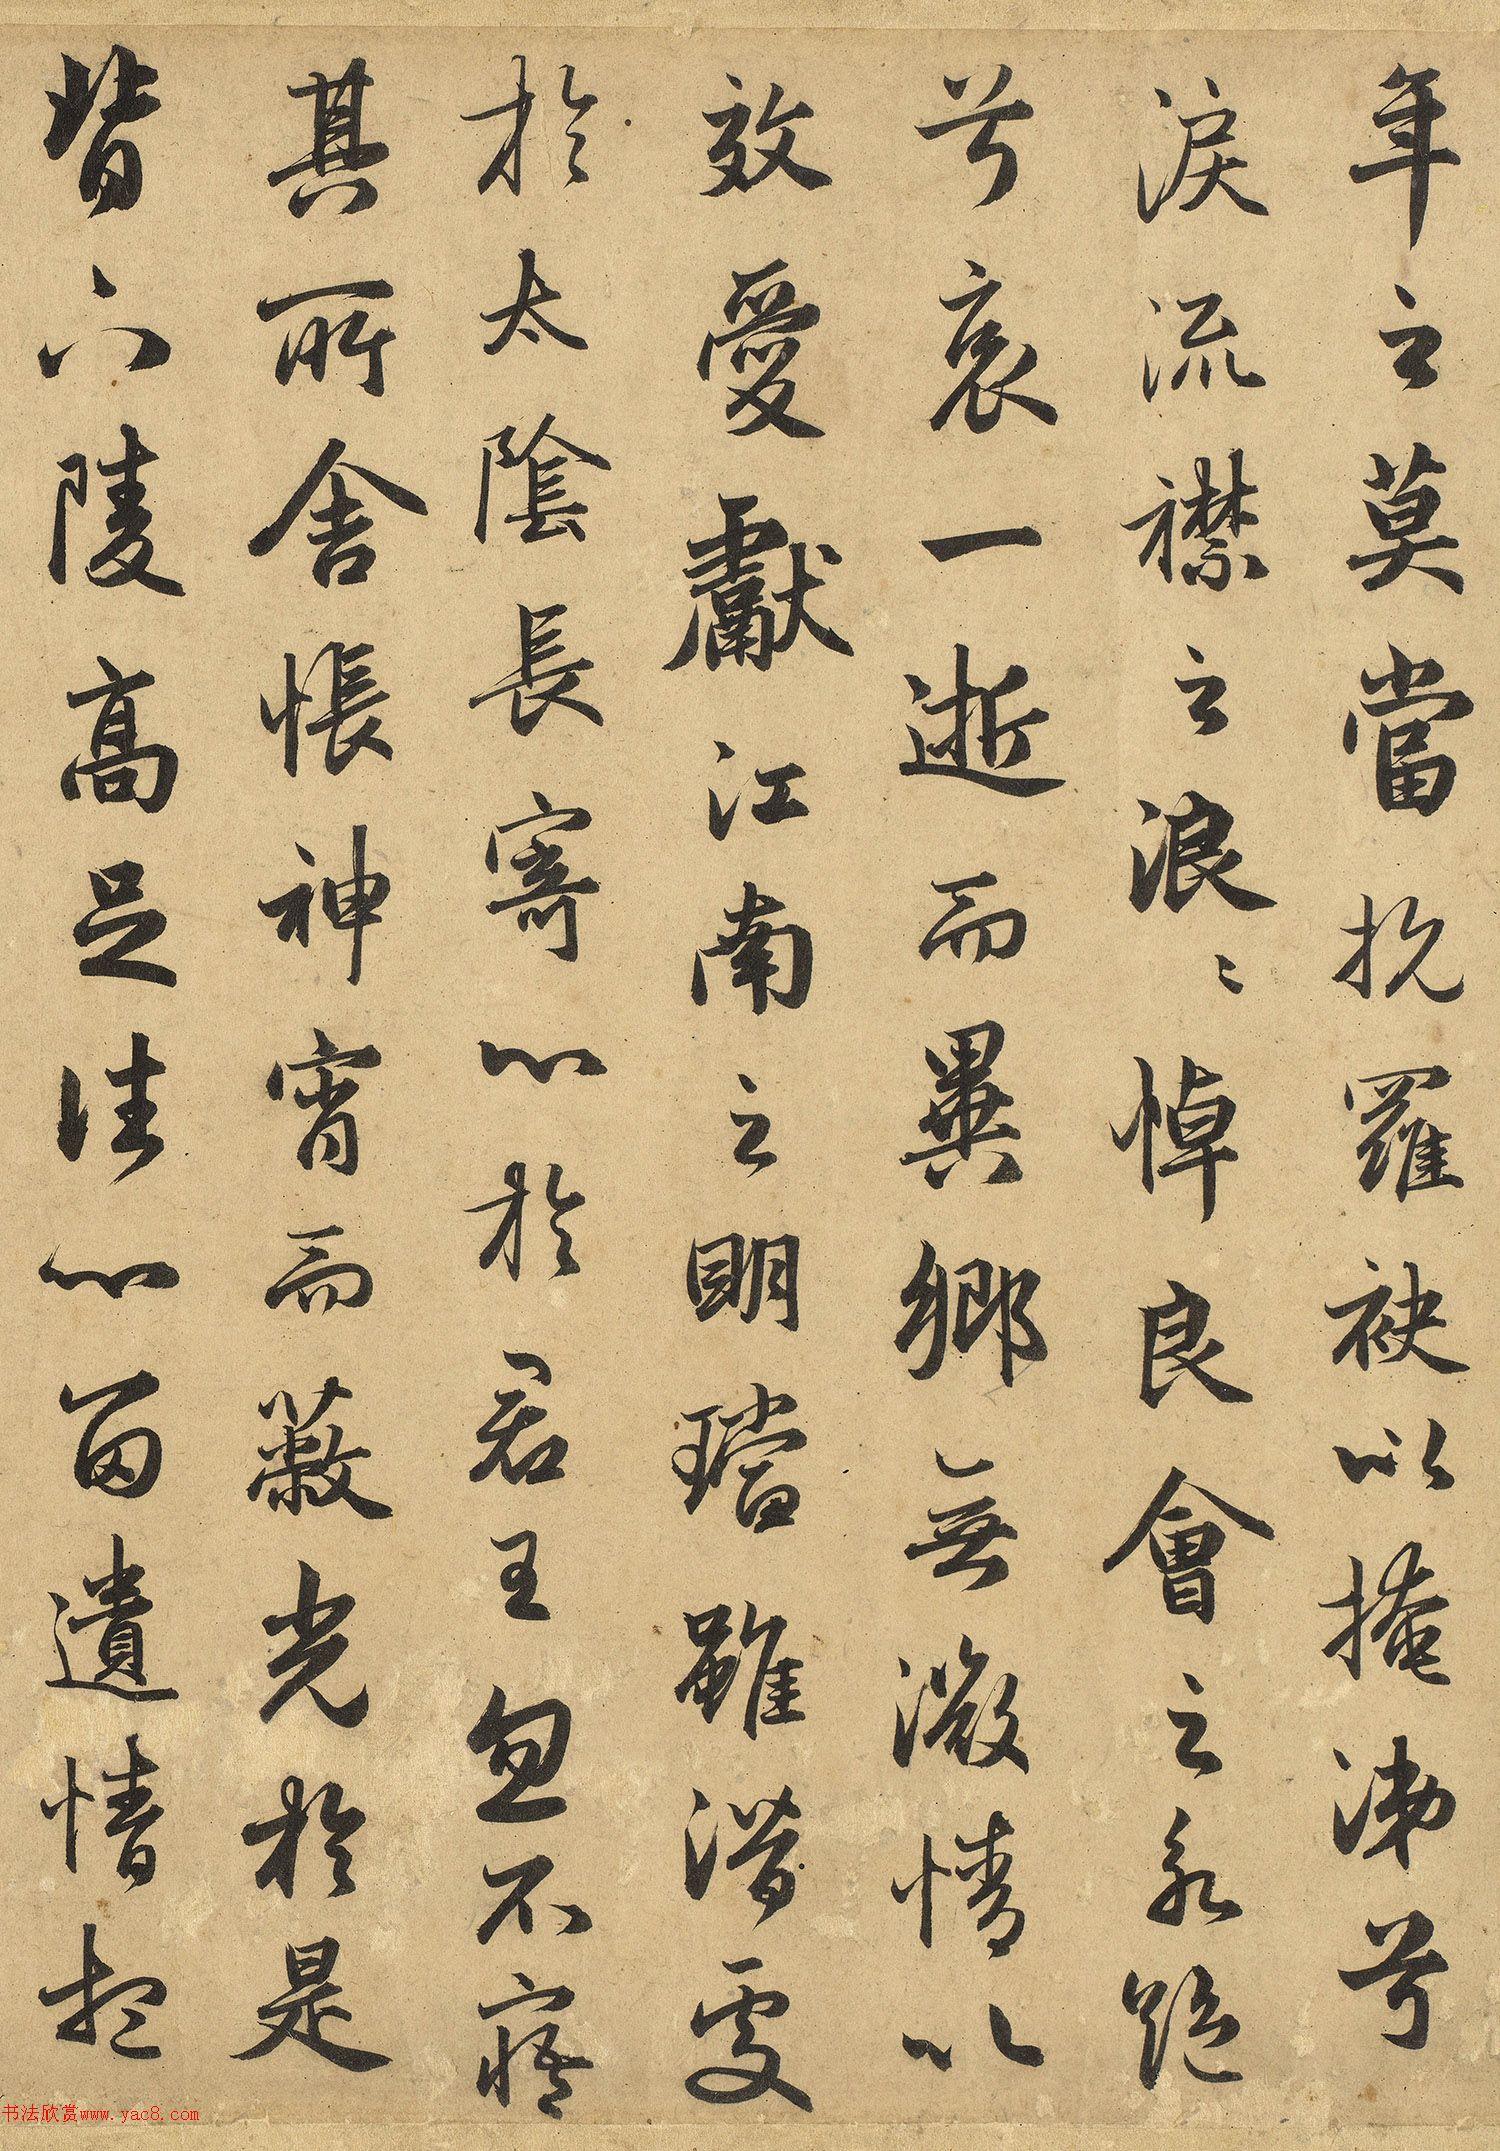 年之莫當抗羅袂以掩涕兮
淚流襟之浪〻悼良會之永絕
兮哀一逝而異鄉無微情以
效愛獻江南之明璫雖潛處
於太陰長寄心於君王忽不寤
其所舍悵神宵而蔽光於是
背下陵高足往心留遺情想
书法欣赏www.yac8.com